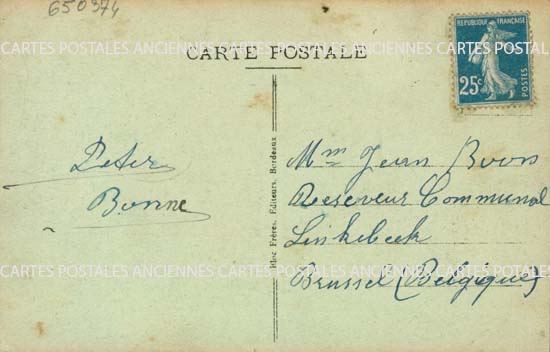 650374
RÉPUBLIQUE FRANÇAISE
25c
POSTES
CARTES POSTALES ANCIENNES CARTES POSTALES ANCIENNES CARTES POSTALES ANCIENNES
CARTE POSTALE
Peter
Bonne
Frères, Éditeurs, Bordeaux
Mm Jean Boons
Receveur Communal
Linkebeek
Brussel (Belgique)
CARTES POSTALES ANCIENNES CARTES POSTALES ANCIENNES CARTES POSTALES ANCIENNES